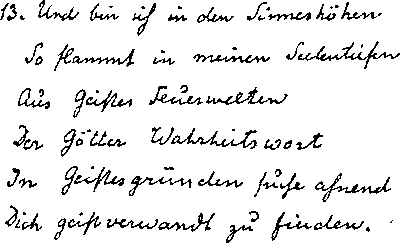 13. Und bin ich in den Sinneshöhen
So flammt in meinen Seelentiefen
Aus Geistes Feuerwelten
Der Götter Wahrheitswort
In Geistesgründen suche ahnend
Dich geistverwandt zu finden.